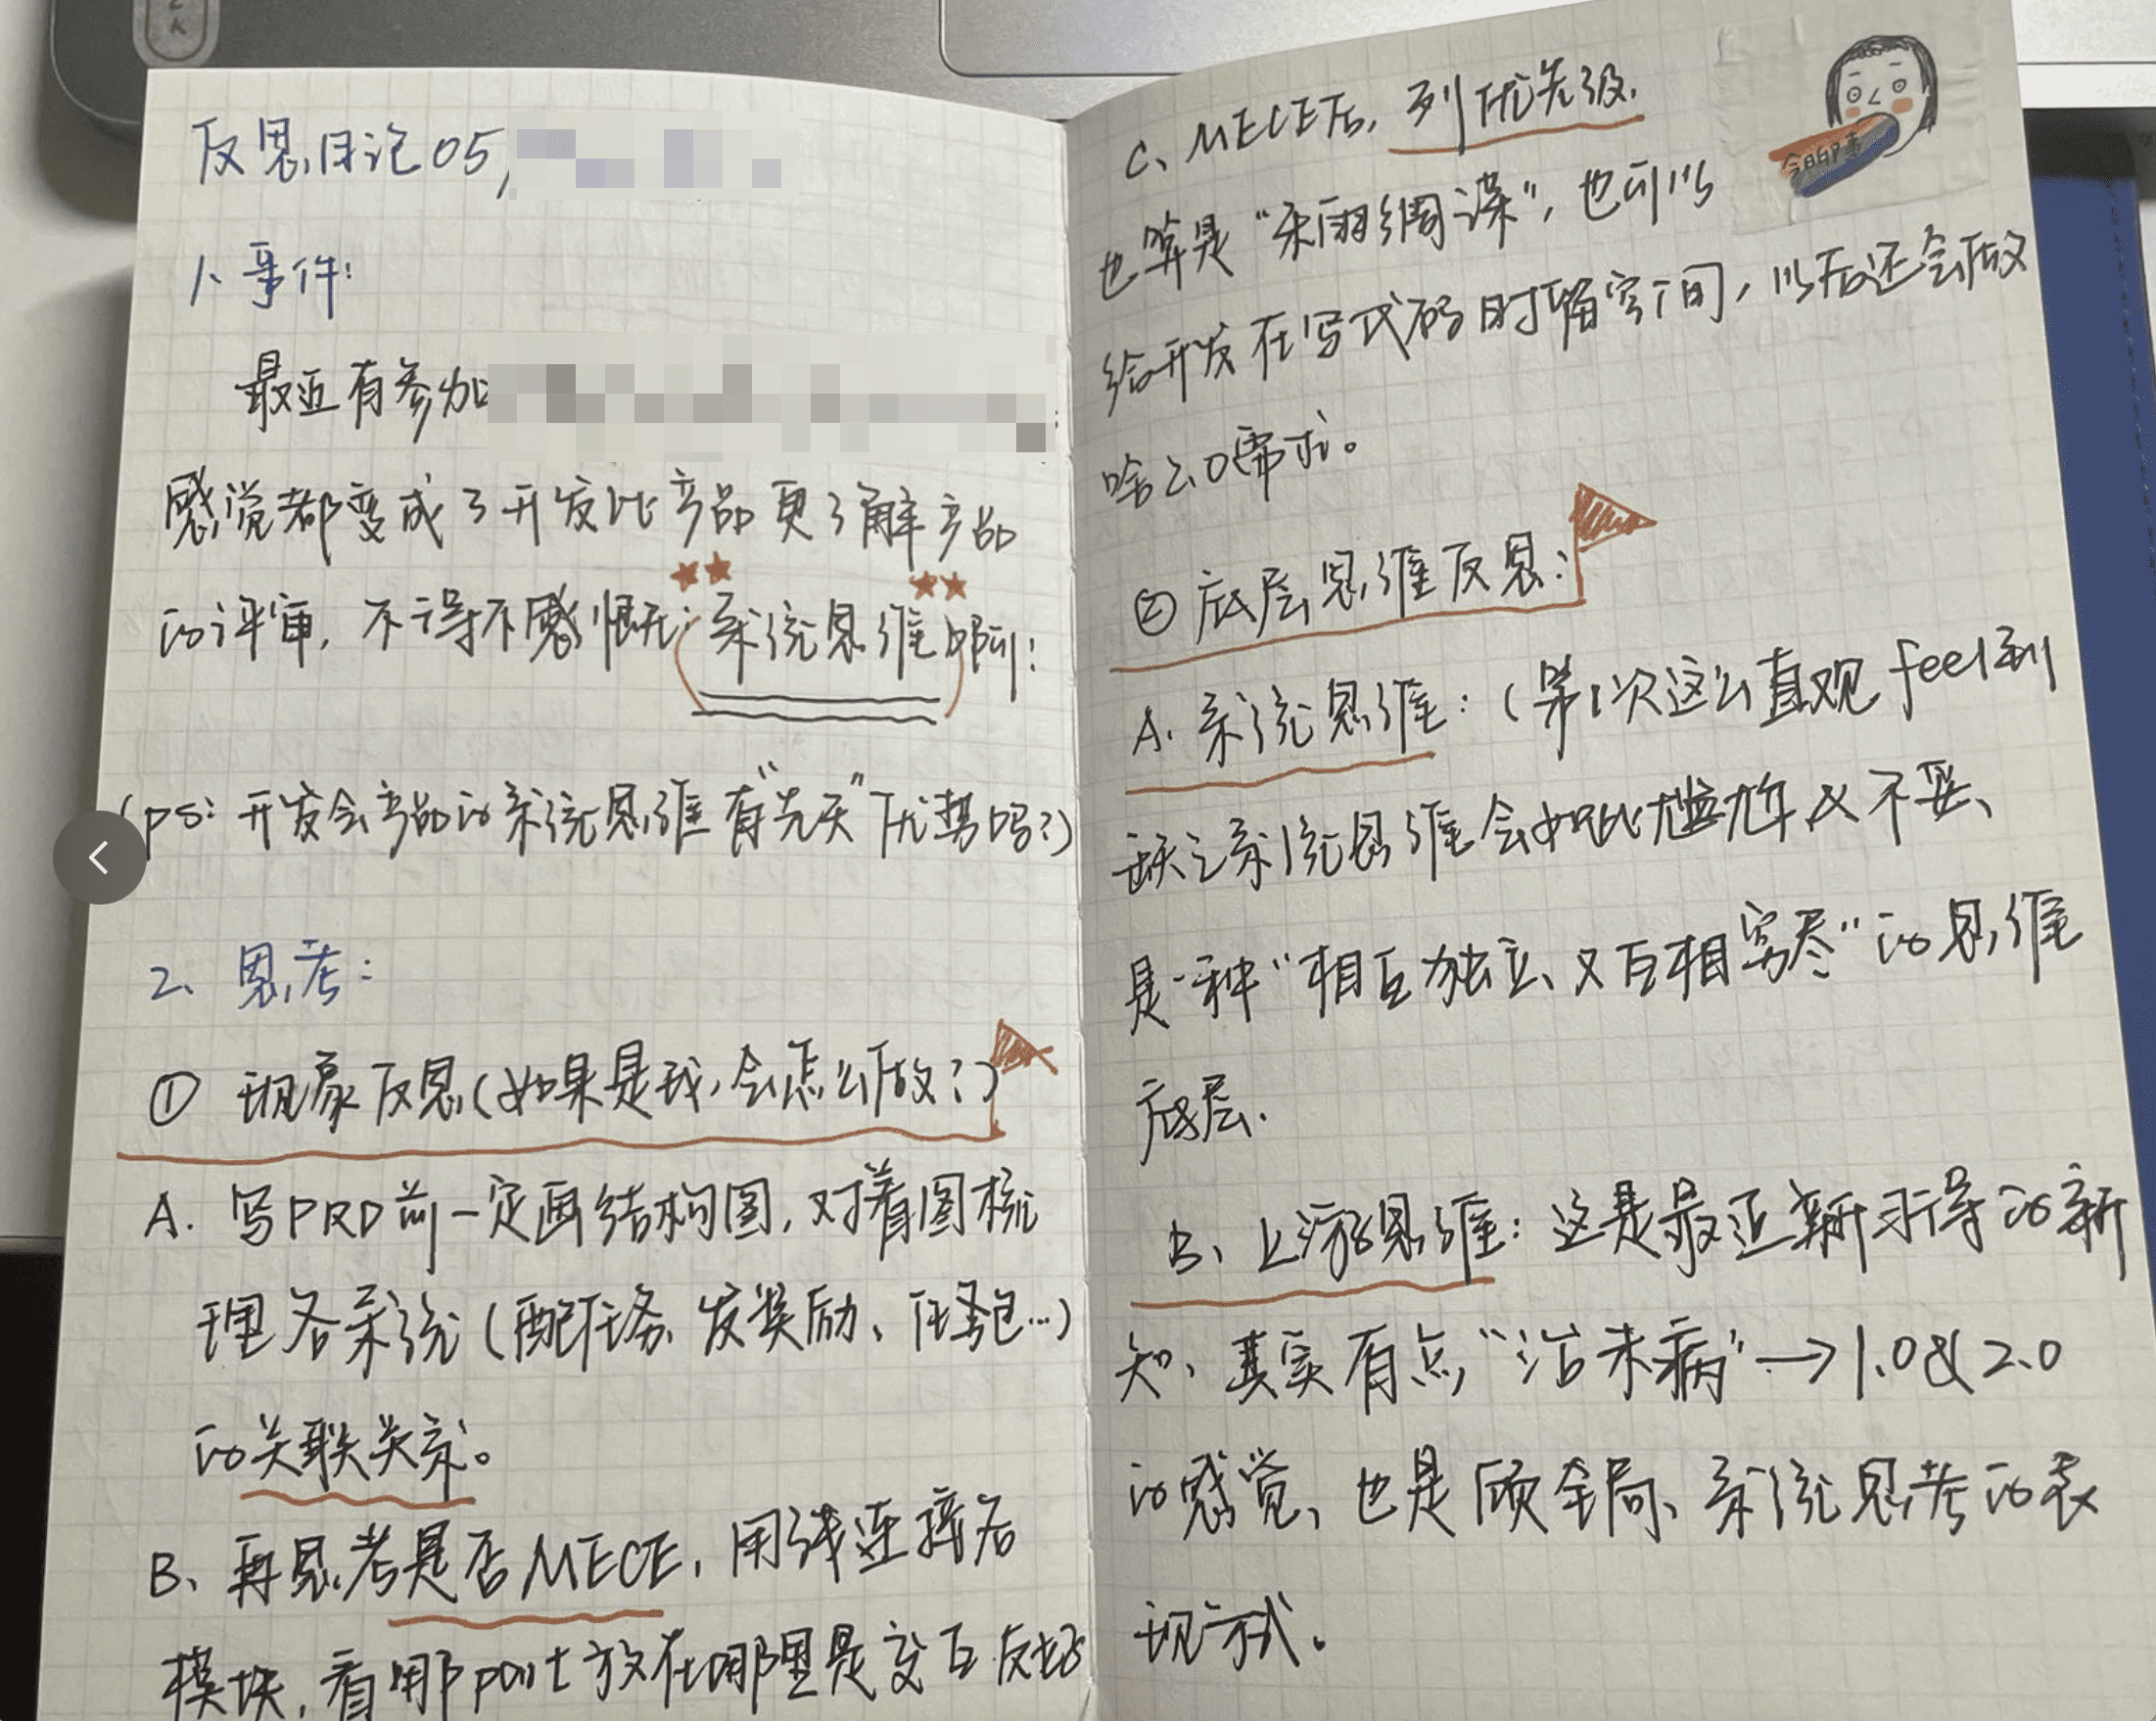 反思日记05,
1、事件:
最近有参加
感觉都变成了开发比产品更了解产品
的评审,不得不感慨:系统思维啊!
(ps:开发会产品的系统思维有“先天”优势吗?)
2、思考:
① 现象反思(如果是我,会怎么做?)
A. 写PRD前一定画结构图,对着图梳
理各系统(配任务、发奖励、任务包…)
的关联关系。
B、再思考是否MECE,用线连接各
模块,看哪part放在哪里是交互友好
C、MECE后,列优先级.
也算是“未雨绸谋”,也可以
给开发在写代码时留空间,以后还会做
啥2.0需求。
② 底层思维反思:
A. 系统思维:(第1次这么直观feel到
缺乏系统思维会如此尴尬又不妥、
是一种“相互独立、又互相穷尽”的思维
底层.
B、上游思维:这是最近新习得的新
知、其实有点“治未病”→1.0&2.0
的感觉、也是顾全局、系统思考的表
现方式。
今日份